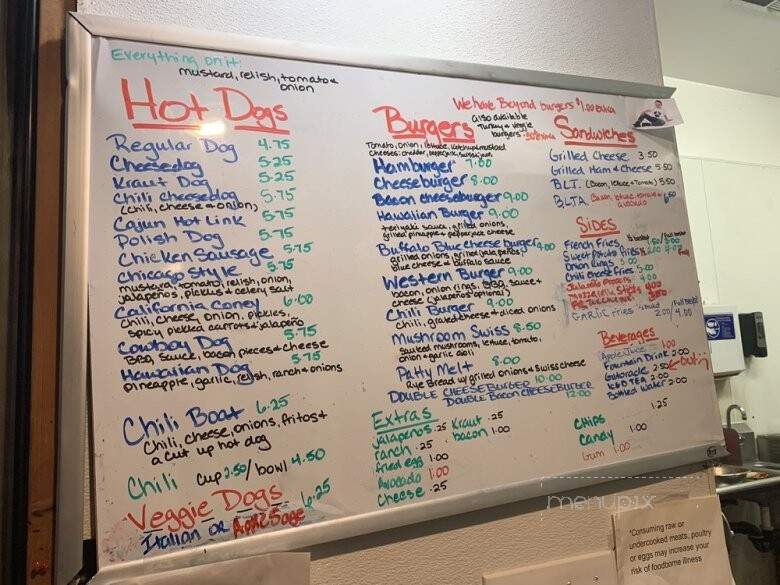 Everything on it:
mustard, relish, tomato &
onion
Hot Dogs
Regular Dog 4.75
Cheesedog 5.25
Kraut Dog 5.25
Chili cheesedog 5.75
(chili, cheese & onion)
Cajun Hot Link 5.75
Polish Dog 5.75
Chicken Sausage 5.75
Chicago Style 5.75
mustard, tomato, relish, onion,
jalapeños, pickles & celery salt
California Coney 6.00
Chili, cheese, onion, pickles,
spicy pickled carrots & jalapeño
Cowboy Dog 5.75
BBQ sauce, bacon pieces & cheese
Hawaiian Dog 5.75
pineapple, garlic, relish, ranch & onions
Chili Boat 6.25
Chili, cheese, onions, fritos &
a cut up hot dog
Chili cup 2.50/bowl 4.50
Veggie Dogs 6.25
Italian or Apple Sage
We have Beyond burgers $1.00 extra
Burgers
also available
Turkey & veggie
burgers
Tomato, onion, lettuce, ketchup & mustard
cheeses: cheddar, pepperjack, swiss
Hamburger 7.00
Cheeseburger 8.00
Bacon cheeseburger 9.00
Hawaiian Burger 9.00
teriyaki sauce, grilled onions,
grilled pineapple & pepperjack cheese
Buffalo Blue cheese burger 9.00
grilled onions, grilled jalapeños,
blue cheese & buffalo sauce
Western Burger 9.00
bacon, onion rings, BBQ sauce &
cheese (jalapeños optional)
Chili Burger 9.00
chili, grated cheese & diced onions
Mushroom Swiss 8.50
sauteed mushrooms, lettuce, tomato,
onion & garlic aioli
Patty Melt 8.00
Rye Bread w/ grilled onions & swiss cheese
DOUBLE CHEESEBURGER 10.00
DOUBLE Bacon CHEESEBURGER 12.00
Extras
jalapeños .25 Kraut .25
ranch .25 bacon 1.00
fried egg 1.00
Avocado 1.00
Cheese .25
Sandwiches
Grilled Cheese 3.50
Grilled Ham & Cheese 5.50
B.L.T. (Bacon, lettuce & Tomato) 5.50
BLTA Bacon, lettuce, tomato &
avocado 6.50
SIDES
French Fries
Sweet Potato Fries
Onion Rings 3.00
Chili Cheese Fries 5.00
Jalapeño Poppers 4.00
Mozzarella Sticks 4.00
GARLIC Fries 2.00 / 4.00
Beverages
Apple Juice 1.00
Fountain Drink 2.00
Gatorade 2.50
ICED TEA 2.00
Bottled Water 2.00
CHIPS 1.25
Candy 1.00
Gum 1.00
menupix
*Consuming raw or
undercooked meats, poultry
or eggs may increase your
risk of foodborne illness